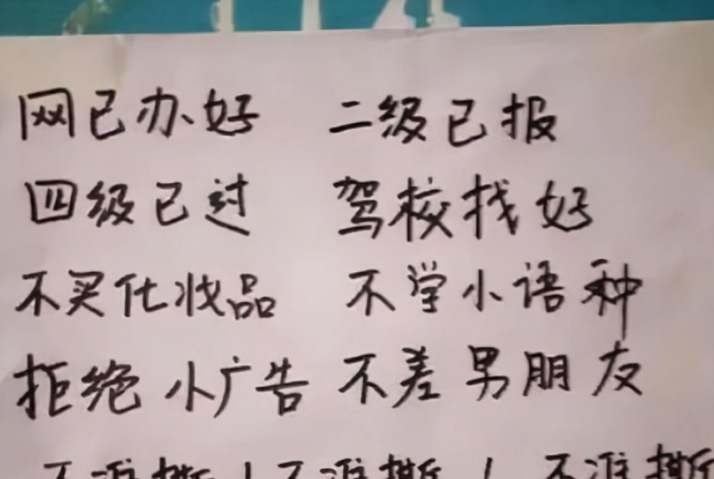 网已办好 二级已报
四级已过 驾校找好
不买化妆品 不学小语种
拒绝小广告 不差男朋友
不准撕！不准撕！不准撕